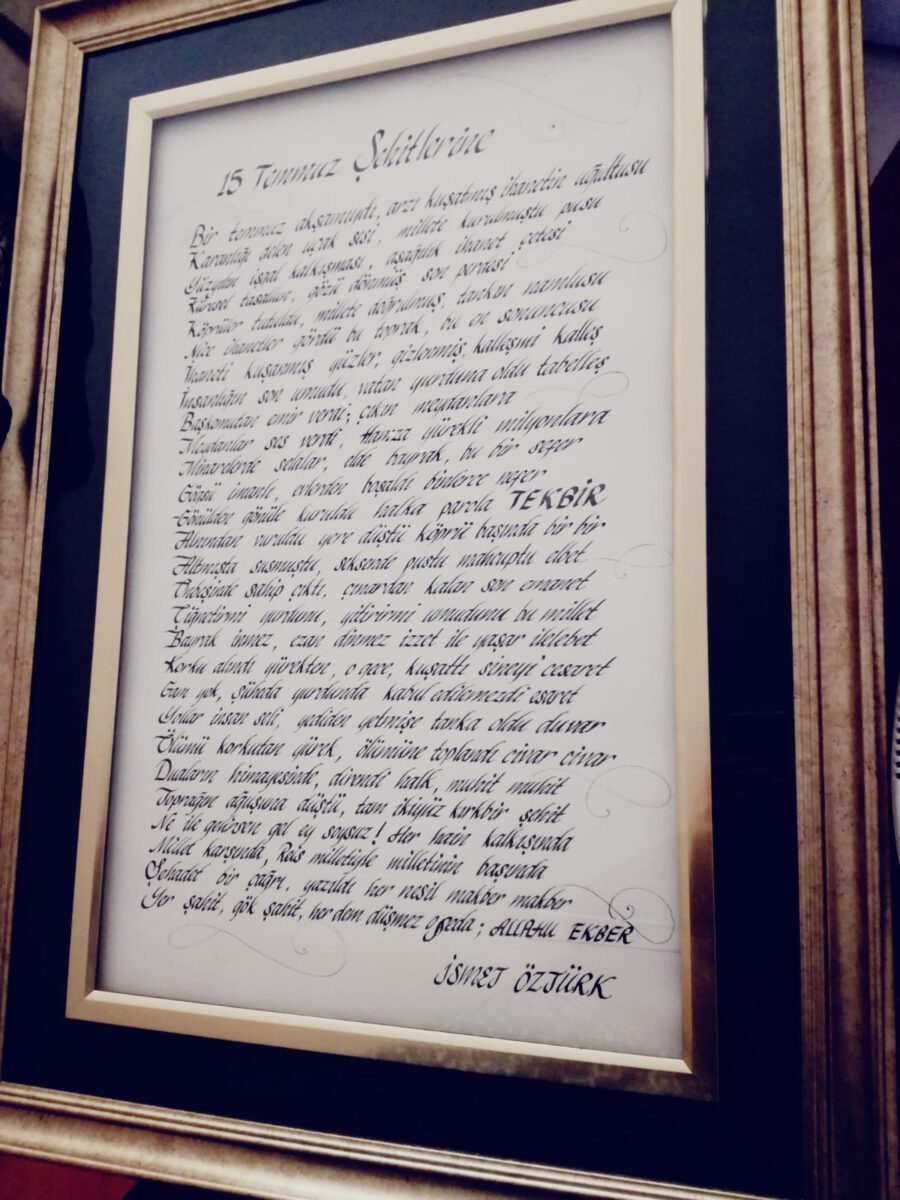 15 Temmuz Şehitlerine
Bir temmuz akşamındı, arzı kuşatmış ihanetin uğultusu
Karanlığı delen uçak sesi, millete kurulmuştu pusu
Yüzyılın işgal kalkışması, aşağılık ihanet çetesi
Küresel tasallun, gözü dönmüş son perdesi
Köprüler tutuldu, millete doğrulmuş, tankın namlusu
Nice ihanetler gördü bu toprak, bu en sonuncusu
İhaneti kuşanmış yüzler, gizlenmiş kalleşmi kalleş
İnsanlığın son umudu, vatan yurduna oldu tabelleş
Başkomutan emir verdi; çıkın meydanlara
Meydanlar ses verdi, Hamza yürekli milyonlara
Minarelerde selalar, elde bayrak, bu bir sefer
Göğsü imanlı, evlerden boşaldı binlerce nefer
Gönülden gönüle kuruldu halka parola TEKBİR
Alnından vuruldu yere düştü köprü başında bir bir
Altmışta susmuştu, seksende pustu mahcuptu elbet
Onbeşinde sahip çıktı, çınardan kalan son emanet
Çiğnetirmi yurdunu, yitirirmi umudunu bu millet
Bayrak inmez, ezan dinmez izzet ile yaşar ilelebet
Korku alındı yürekten, o gece, kuşattı sineyi cesaret
Gam yok, şüheda yurdunda kabul edilemezdi esaret
Yollar insan seli, yediden yetmişe tanka oldu duvar
Ölümü korkutan yürek, ölümüne toplandı civar civar
Duaların himayesinde, direndi halk, muhit muhit
Toprağın ağuşuna düştü, tam ikiyüz kırkbir şehit
Ne ile gelirsen gel ey soysuz! Her hain kalkışında
Millet karşında, Reis milletiyle milletinin başında
Şehadet bir çağrı, yazıldı her nesil makber makber
Yer şahit, gök şahit, her dem düşmez o seda; ALLAHU EKBER
İSMET ÖZTÜRK